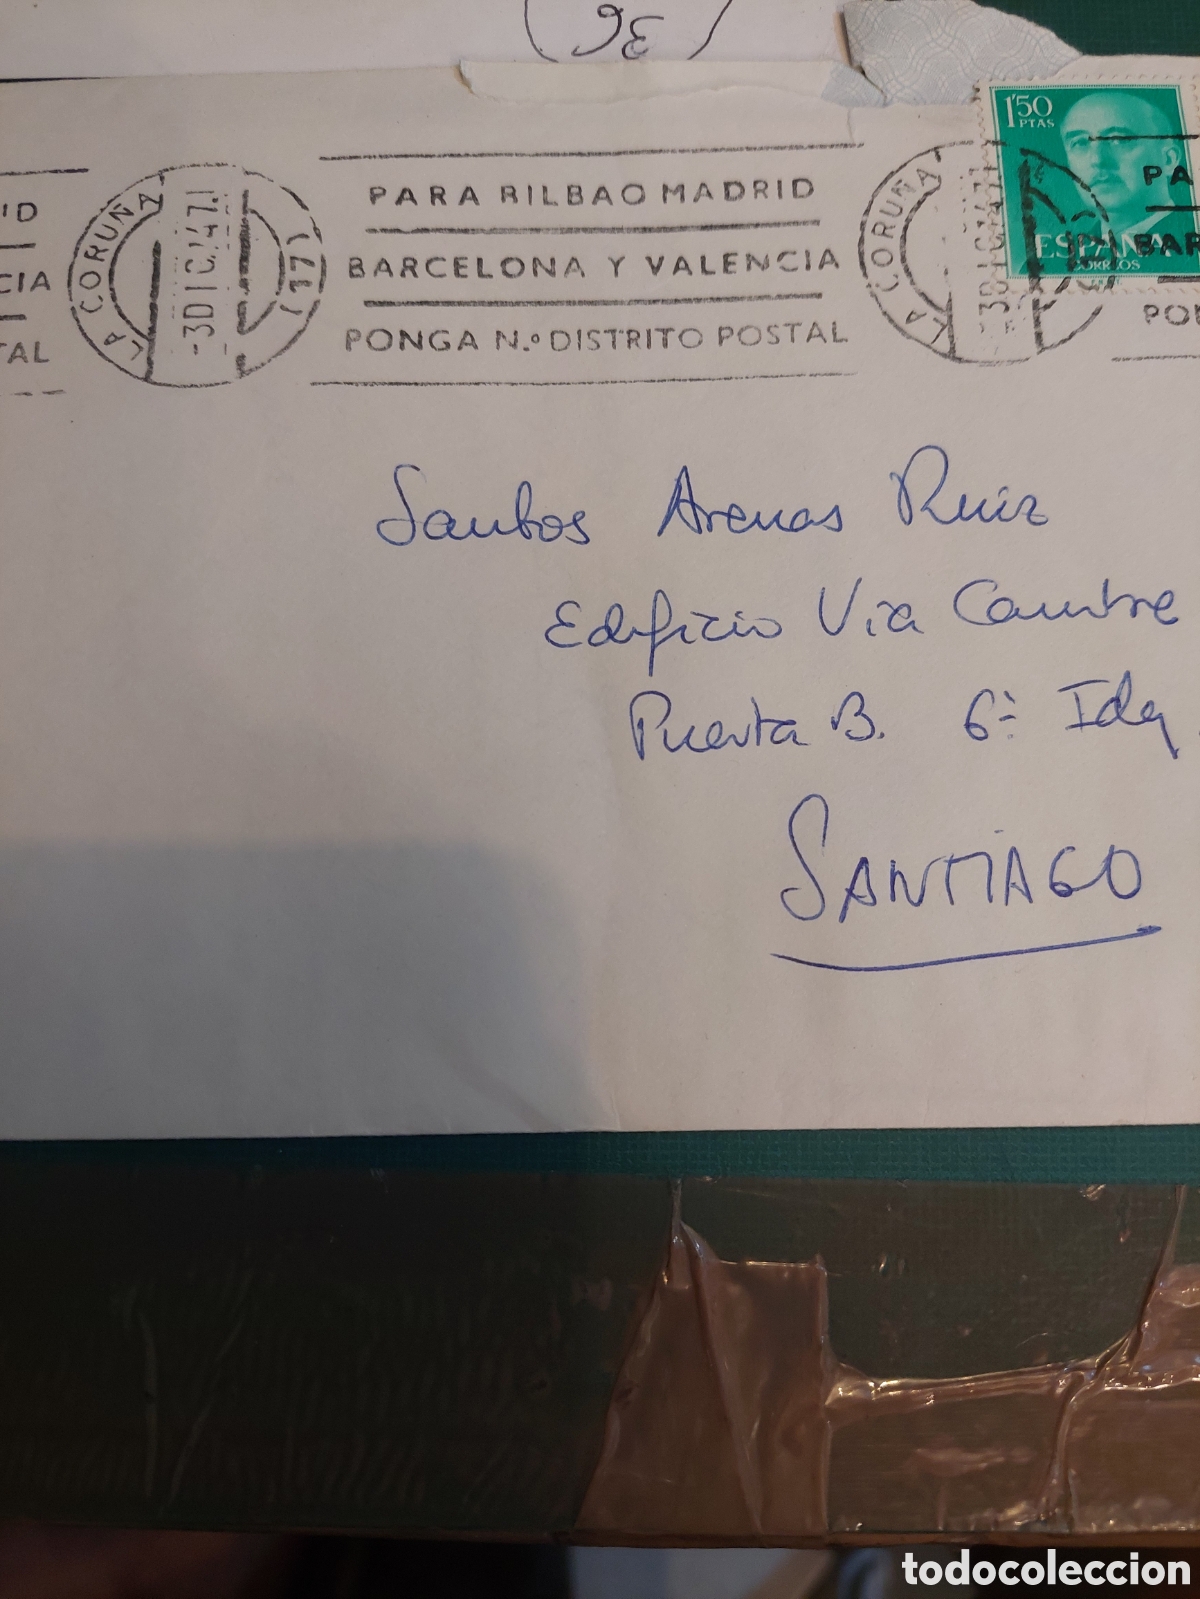 36
1'50
PTAS
ESPAÑA
CORREOS
LA CORUÑA
-3DIC.47.1
(17)
PARA BILBAO MADRID
BARCELONA Y VALENCIA
PONGA N.º DISTRITO POSTAL
LA CORUÑA
ID
CIA
TAL
PA
BAR
PO
Santos Arenas Ruiz
Edificio Via Cambre
Puerta B. 6º Idq
SANTIAGO
todocoleccion